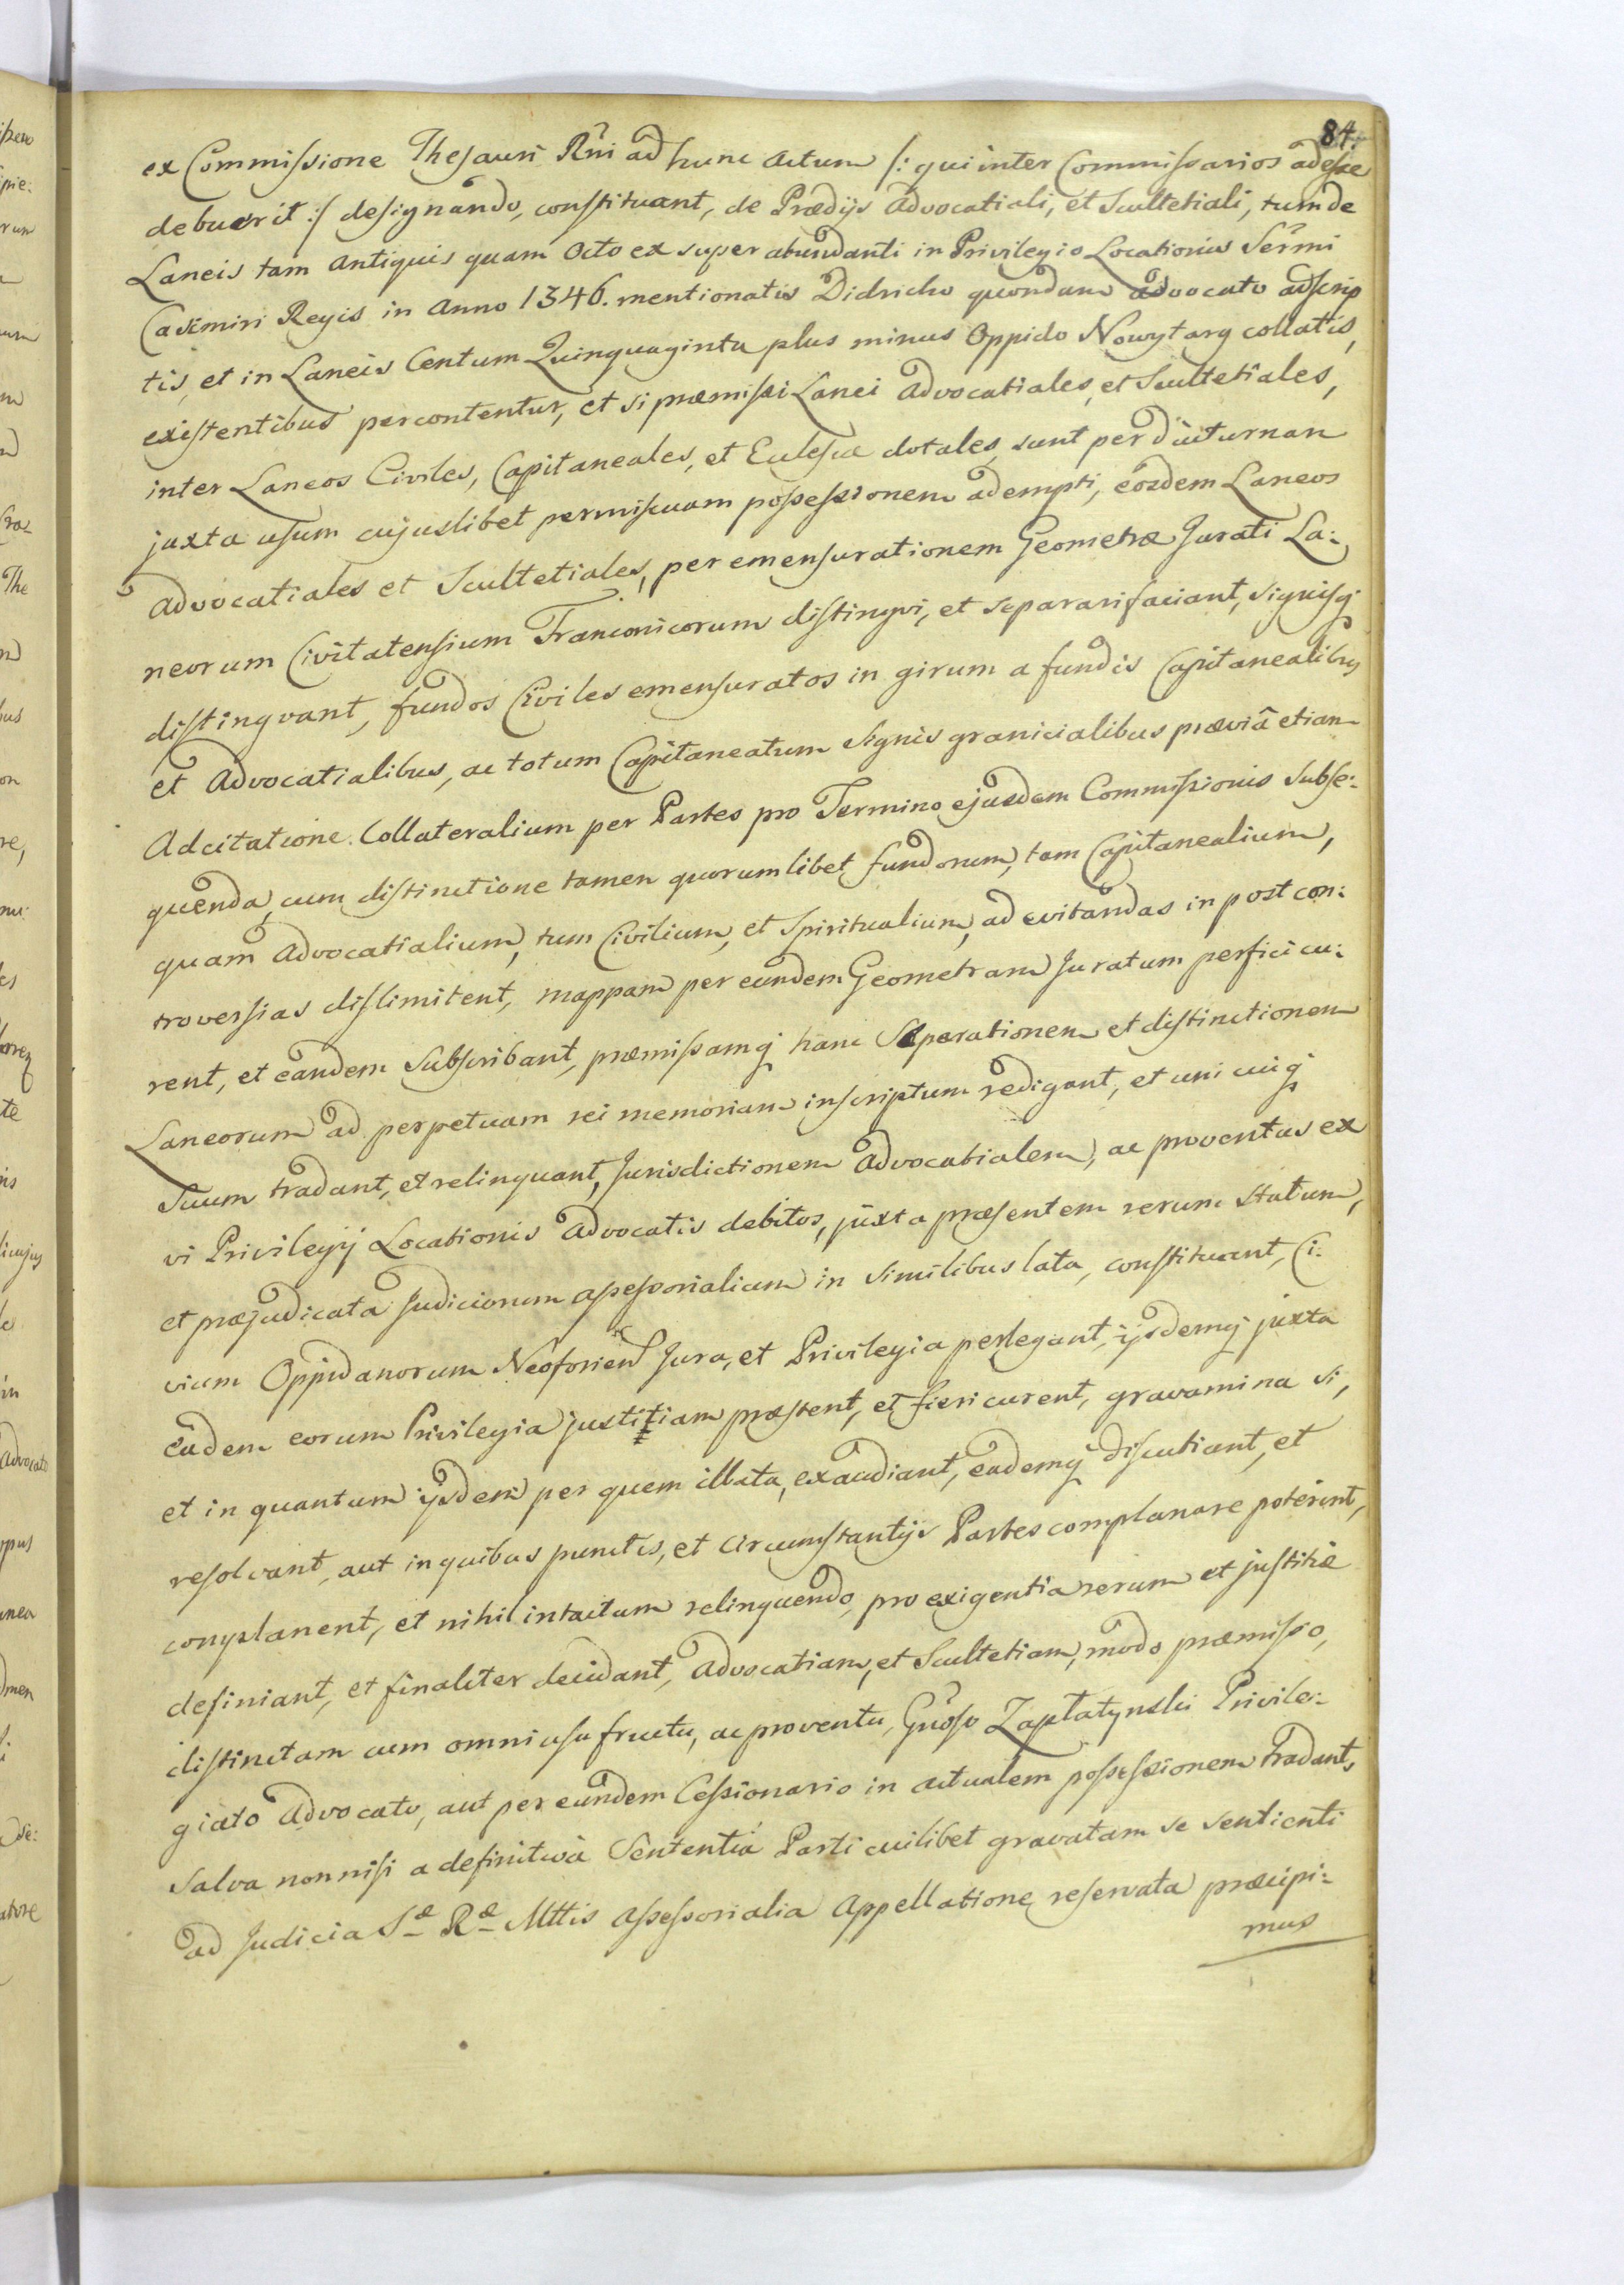 84.
ex Commissione Thesauri Rñi ad hunc actum /: qui inter Commissarios adesse
debuerit :/ designando, constituant, de Prædijs Advocatiali, et Scultetiali, tum de
Laneis tam antiquis quam octo ex superabundanti in Privilegio Locationis Sermi
Casimiri Regis in Anno 1346. mentionatis Didricho quondam advocato adscrip
tis, et in Laneis Centum Quinquaginta plus minus Oppido Nowytarg collatis,
existentibus percontentur, et si præmissi Lanei Advocatiales, et Scultetiales,
inter Laneos Civiles, Capitaneales, et Eclesiæ dotales, sunt per diuturnam
juxta usum cujuslibet permiscuam possessionem adempti, eosdem Laneos
Advocatiales et Scultetiales, per emensurationem Geometræ Jurati La:
neorum Civitatensium Franconicorum distingvi, et separari faciant, signisq
distingvant, fundos Civiles emensuratos in girum a fundis Capitanealibus
et Advocatialibus, ac totum Capitaneatum signis granicialibus præviâ etiam
Adcitatione Collateralium per Partes pro Termino ejusdem Commissionis subse:
quenda, cum distinctione tamen quorumlibet fundorum, tam Capitanealium,
quam Advocatialium, tum Civilium, et Spiritualium, ad evitandas in post con:
troversias dislimitent, mappam per eundem Geometram Juratum perfici cu:
rent, et eandem subscribant, præmissamq hanc Separationem et distinctionem
Laneorum ad perpetuam rei memoriam inscriptum redigant, et uni cuiq
Suum tradant, et relinquant, Jurisdictionem Advocatialem, ac proventus ex
vi Privilegij Locationis Advocatis debitos, juxta præsentem rerum statum,
et præjudicata Judiciorum assessorialium in similibus lata, constituant, Ci:
vium Oppidanorum Neoforien Jura, et Privilegia perlegant, ijsdemq juxta
eadem eorum Privilegia justitiam præstent, et fieri curent, gravamina si,
et in quantum ijsdem per quem illata, exaudiant, eademq discutiant, et
resolvant, aut in quibus punctis, et circumstantijs Partes complanare poterint,
complanent, et nihil intactum relinquendo, pro exigentia rerum et justitiæ
definiant, et finaliter decidant, Advocatiam, et Scultetiam, modo præmisso,
distinctam cum omni usufructu, ac proventu, Gnoso Zapłatynski Privile:
giato Advocato, aut per eundem Cessionario in actualem possessionem tradant,
salva nonnisi a definitiva Sententia Parti cuilibet gravatam se sentienti
ad Judicia Sæ Ræ Mttis assessorialia Appellatione reservata præcipi:
mus